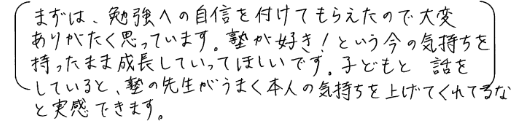 まずは、勉強への自信を付けてもらえたので大変
ありがたく思っています。塾が好き!という今の気持ちを
持ったまま成長していってほしいです。子どもと 話を
していると、塾の先生がうまく本人の気持ちを上げてくれてるな
と実感できます。